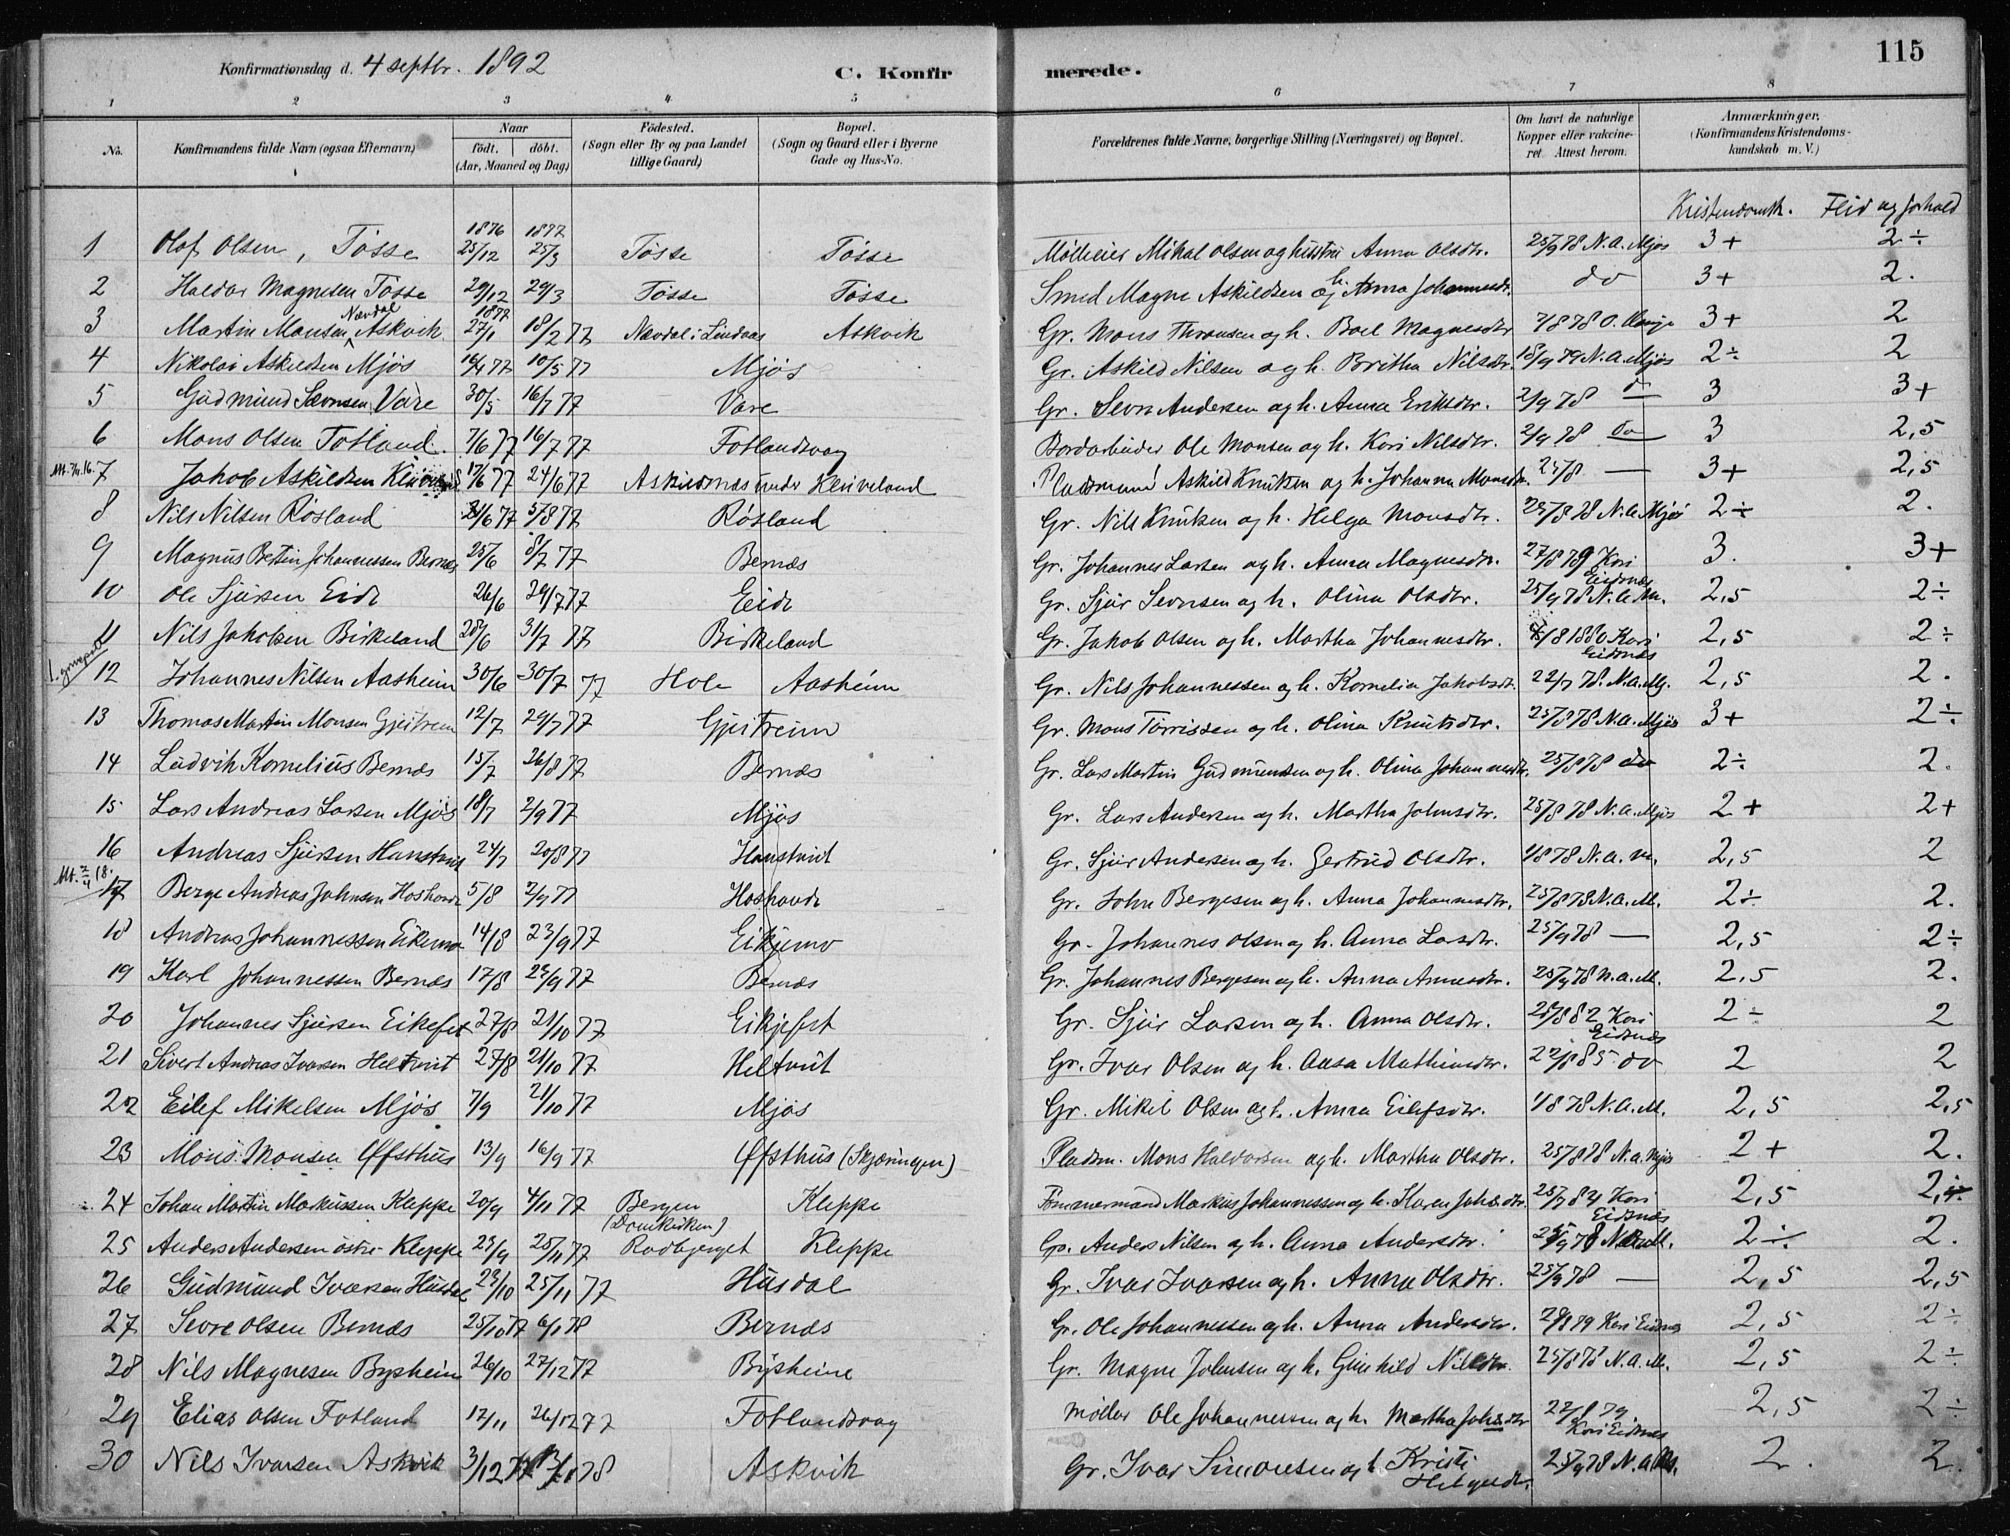 115
Konfirmationsdag d. 4 septbr. 1892 C. Konfirmerede.
1 2 3 4 5 6 7 8
No. Konfirmandens fulde Navn (ogsaa Efternavn) Naar født. døbt. (Aar, Maaned og Dag) Fødested. (Sogn eller By og paa Landet tillige Gaard) Bopæl. (Sogn og Gaard eller i Byerne Gade og Hus-No. Forældrenes fulde Navne, borgerlige Stilling (Næringsvei) og Bopæl. Om havt de naturlige Kopper eller vakcineret. Attest herom. Anmærkninger, (Konfirmandens Kristendomskundskab m. V.)
Kristendomsk. Flid og forhold
1 Olaf Olsen, Tøsse 1876 25/12 1877 25/3 Tøsse Tøsse Mølleier Mikal Olsen og hustru Anna Olsdtr. 25/9 78 N. A. Mjøs 3+ 2÷
2 Haldor Magnesen Tøsse 29/12 29/3 Tøsse Tøsse Smed Magne Askildsen og h. Anna Johannesdr. do 3+ 2.
3 Martin Monsen Nævdal Askvik 1877 27/1 18/2 77 Nævdal i Lindaas Askvik Gr. Mons Thronsen og h. Boel Magnesdtr 7/8 78 O. 3+ 2
4 Nikolai Askildsen Mjøs 16/4 77 10/5 77 Mjøs Gr. Askild Nilsen og h. Britha Nilsdtr. 18/9 79 N. A. Mjøs 2÷ 2
5 Gudmund Sævnsen Vare 30/5 16/7 77 Vare Gr. Sevn Andersen og h. Anna Eriksdtr. 2/9 78 do 3 3+
6 Mons Olsen Fotland. 7/6 77 16/7 77 Fotlandsvag Bordarbeider Ole Monsen og h. Kari Nilsdtr. 2/9 78 do 3 2,5
7 Jakob Askildsen 17/6 77 24/6 77 Askildnæs under Kleiveland Pladsmand Askild Knutsen og h. Johanna Monsdtr. 25/8 — 3+ 2,5
8 Nils Nilsen Røsland 21/6 77 5/8 77 Røsland Gr. Nils Knutsen og h. Helga Monsdtr. 25/8 78 N. A. Mjøs 2÷ 2.
9 Magnus Johannessen Bernæs 25/6 8/7 77 Bernæs Gr. Johannes Larsen og h. Anna Magnesdtr. 27/8 79 Kari Eidsnæs 3. 3+
10 Ole Sjursen Eide 26/6 29/7 77 Eide Gr. Sjur Sevnsen og h. Olina Olsdtr. 25/9 78 N. A. M. 2,5 2÷
11 Nils Jakobsen Birkeland 28/6 31/7 77 Birkeland Gr. Jakob Olsen og h. Martha Johannesdtr. 8 1880 Kari Eidsnæs 2,5 2÷
12 Johannes Nilsen Aasheim 30/6 30/7 77 Hole Aasheim Gr. Nils Johannessen og h. Kornelia Jakobsdtr. 22/7 78. N. A. M. 2,5 2.
13 Thomas Martin Monsen Gjeitreim 12/7 29/7 77 Gjeitreim Gr. Mons Torrissen og h. Olina Knutsdtr. 25/8 78 N. A. Mjøs 3+ 2÷
14 Ludvik Kornelius Bernæs 15/7 26/8 77 Bernæs Gr. Lars Martin Gudmundsen og h. Olina Johannesdtr. 25/8 78 do 2÷ 2.
15 Lars Andreas Larsen Mjøs 18/7 2/9 77 Mjøs Gr. Lars Andersen og h. Martha Johnsdtr. 25/8 78 N. A. Mjøs 2+ 2+
16 Andreas Sjursen Hanstveit 24/7 20/8 77 Hanstveit Gr. Sjur Andersen og h. Gertrud Olsdtr. 1/8 78 N. A. M. 2,5 2
17 Berge Andreas Johnsen Hoshovde 5/8 2/9 77 Hoshovde Gr. John Bergesen og h. Anna Johannesdtr. 25/8 78 N. A. M. 2÷ 2.
18 Andreas Johannessen Eikemo 14/8 23/9 77 Eikjemo Gr. Johannes Olsen og h. Anna Larsdtr. 25/9 78 — 2,5 2÷
19 Karl Johannessen Bernæs 17/8 23/9 77 Bernæs Gr. Johannes Bergesen og h. Anna Arnesdtr. 25/9 78 N. A. M. 2,5 2.
20 Johannes Sjursen Eikefet 27/8 21/10 77 Eikjefet Gr. Sjur Larsen og h. Anna Olsdtr. 25/8 82 Kari Eidsnæs 2÷ 2
21 Sivert Andreas Ivarsen Heltveit 27/8 21/10 77 Heltveit Gr. Ivar Olsen og h. Aasa Mathiasdtr. 22/8 85 do 2 2
22 Eilef Mikelsen Mjøs 7/9 21/10 77 Mjøs Gr. Mikel Olsen og h. Anna Eilefsdtr. 1/8 78 N. A. M. 2,5 2,5
23 Mons Monsen Øfsthus 13/9 16/9 77 Øfsthus (Skjæringen) Pladsm. Mons Haldorsen og h. Martha Olsdtr. 25/8 78 N. A. Mjøs 2+ 2.
24 Johan Martin Markussen Kleppe 20/9 4/11 77 Bergen (Domkirken) Kleppe Tømmermand Markus Johannessen og h. Karen Johsdtr. 25/7 84 Kari Eidsnæs 2,5 2,
25 Anders Andersen østre Kleppe 23/9 25/11 77 Rødbjerget Kleppe Gr. Anders Nilsen og h. Anna Andersdtr. 25/9 78 2÷ 2.
26 Gudmund Ivarsen Husdal 23/10 25/11 77 Husdal Gr. Ivar Ivarsen og h. Anna Olsdtr. 25/9 78 — 2,5 2,5
27 Sevre Olsen Bernæs 25/10 77 6/1 78 Bernæs Gr. Ole Johannessen og h. Anna Andersdtr. 28/8 79 Kari Eidsnæs 2,5 2÷
28 Nils Magnesen Bysheim 26/10 27/12 77 Bysheim Gr. Magne Johnsen og h. Gunhild Nilsdtr. 25/8 78 N. A. M. 2,5 2÷
29 Elias Olsen Fotland 17/11 26/12 77 Fotlandsvag Møller Ole Johannessen og h. Martha Johsdtr 27/8 79 Kari Eidsnæs 2,5 2÷
30 Nils Ivarsen Askvik 3/12 77 13/1 78 Askvik Gr. Ivar Simonsen og h. Kristi Helgesdtr. 25/9 78 N. A. M. 2. 2.